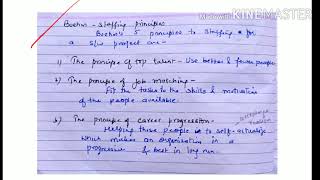 Made with
KINEMASTER
Boehm - staffing principles
Boehm's 5 principles to staffing for
a s/w project are-
1) The principle of top talent - Use better & fewer people
2) The principle of job matching-
Fit the tasks to the skills & motivation
of the people available.
3) The principle of career progression-
Helping those people to self-actualize
which makes an organization in a
progressive & best in long run.